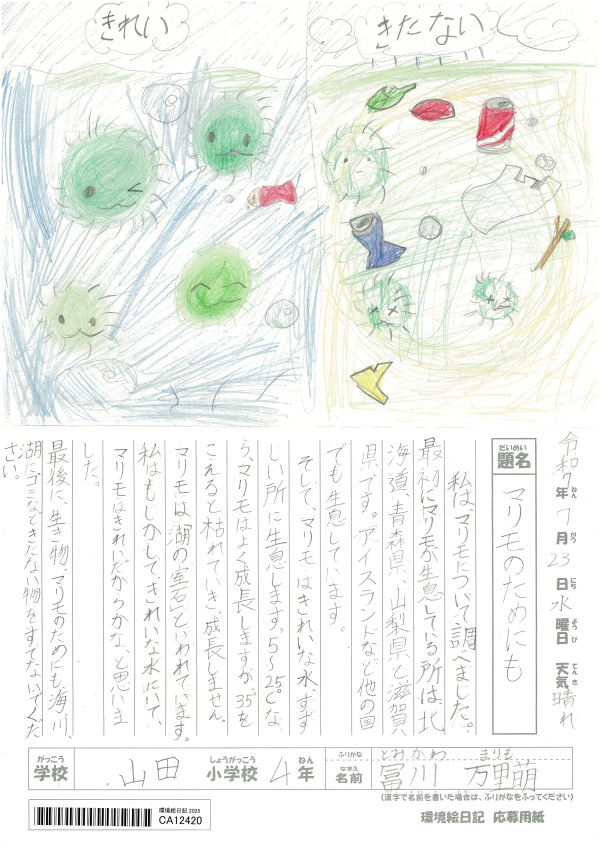 きれい
きたない
令和7年7月23日水曜日 天気晴れ
ねん
がつ
にち
ようび
てんき
だいめい
題名
マリモのためにも
私は、マリモについて調べました。
最初にマリモが生息している所は、北
海道、青森県、山梨県と滋賀
県です。アイスランドなど他の国
でも生息しています。
そして、マリモはきれいな水、すず
しい所に生息します。5～25℃な
ら、マリモはよく成長しますが、35℃を
こえると枯れていき、成長しません。
マリモは「湖の宝石」といわれています。
私はもしかして、きれいな水にいて、
マリモはきれいだからかな、と思いま
した。
最後に、生き物、マリモのためにも、海、川、
湖にゴミなどきたない物をすてないでくだ
さい。
がっこう
学校
山田
しょうがっこう
小学校
4
ねん
年
ふりがな
とみかわ まりも
なまえ
名前
冨川 万里萌
(漢字で名前を書いた場合は、ふりがなをふってください)
環境絵日記 2025
CA12420
環境絵日記 応募用紙